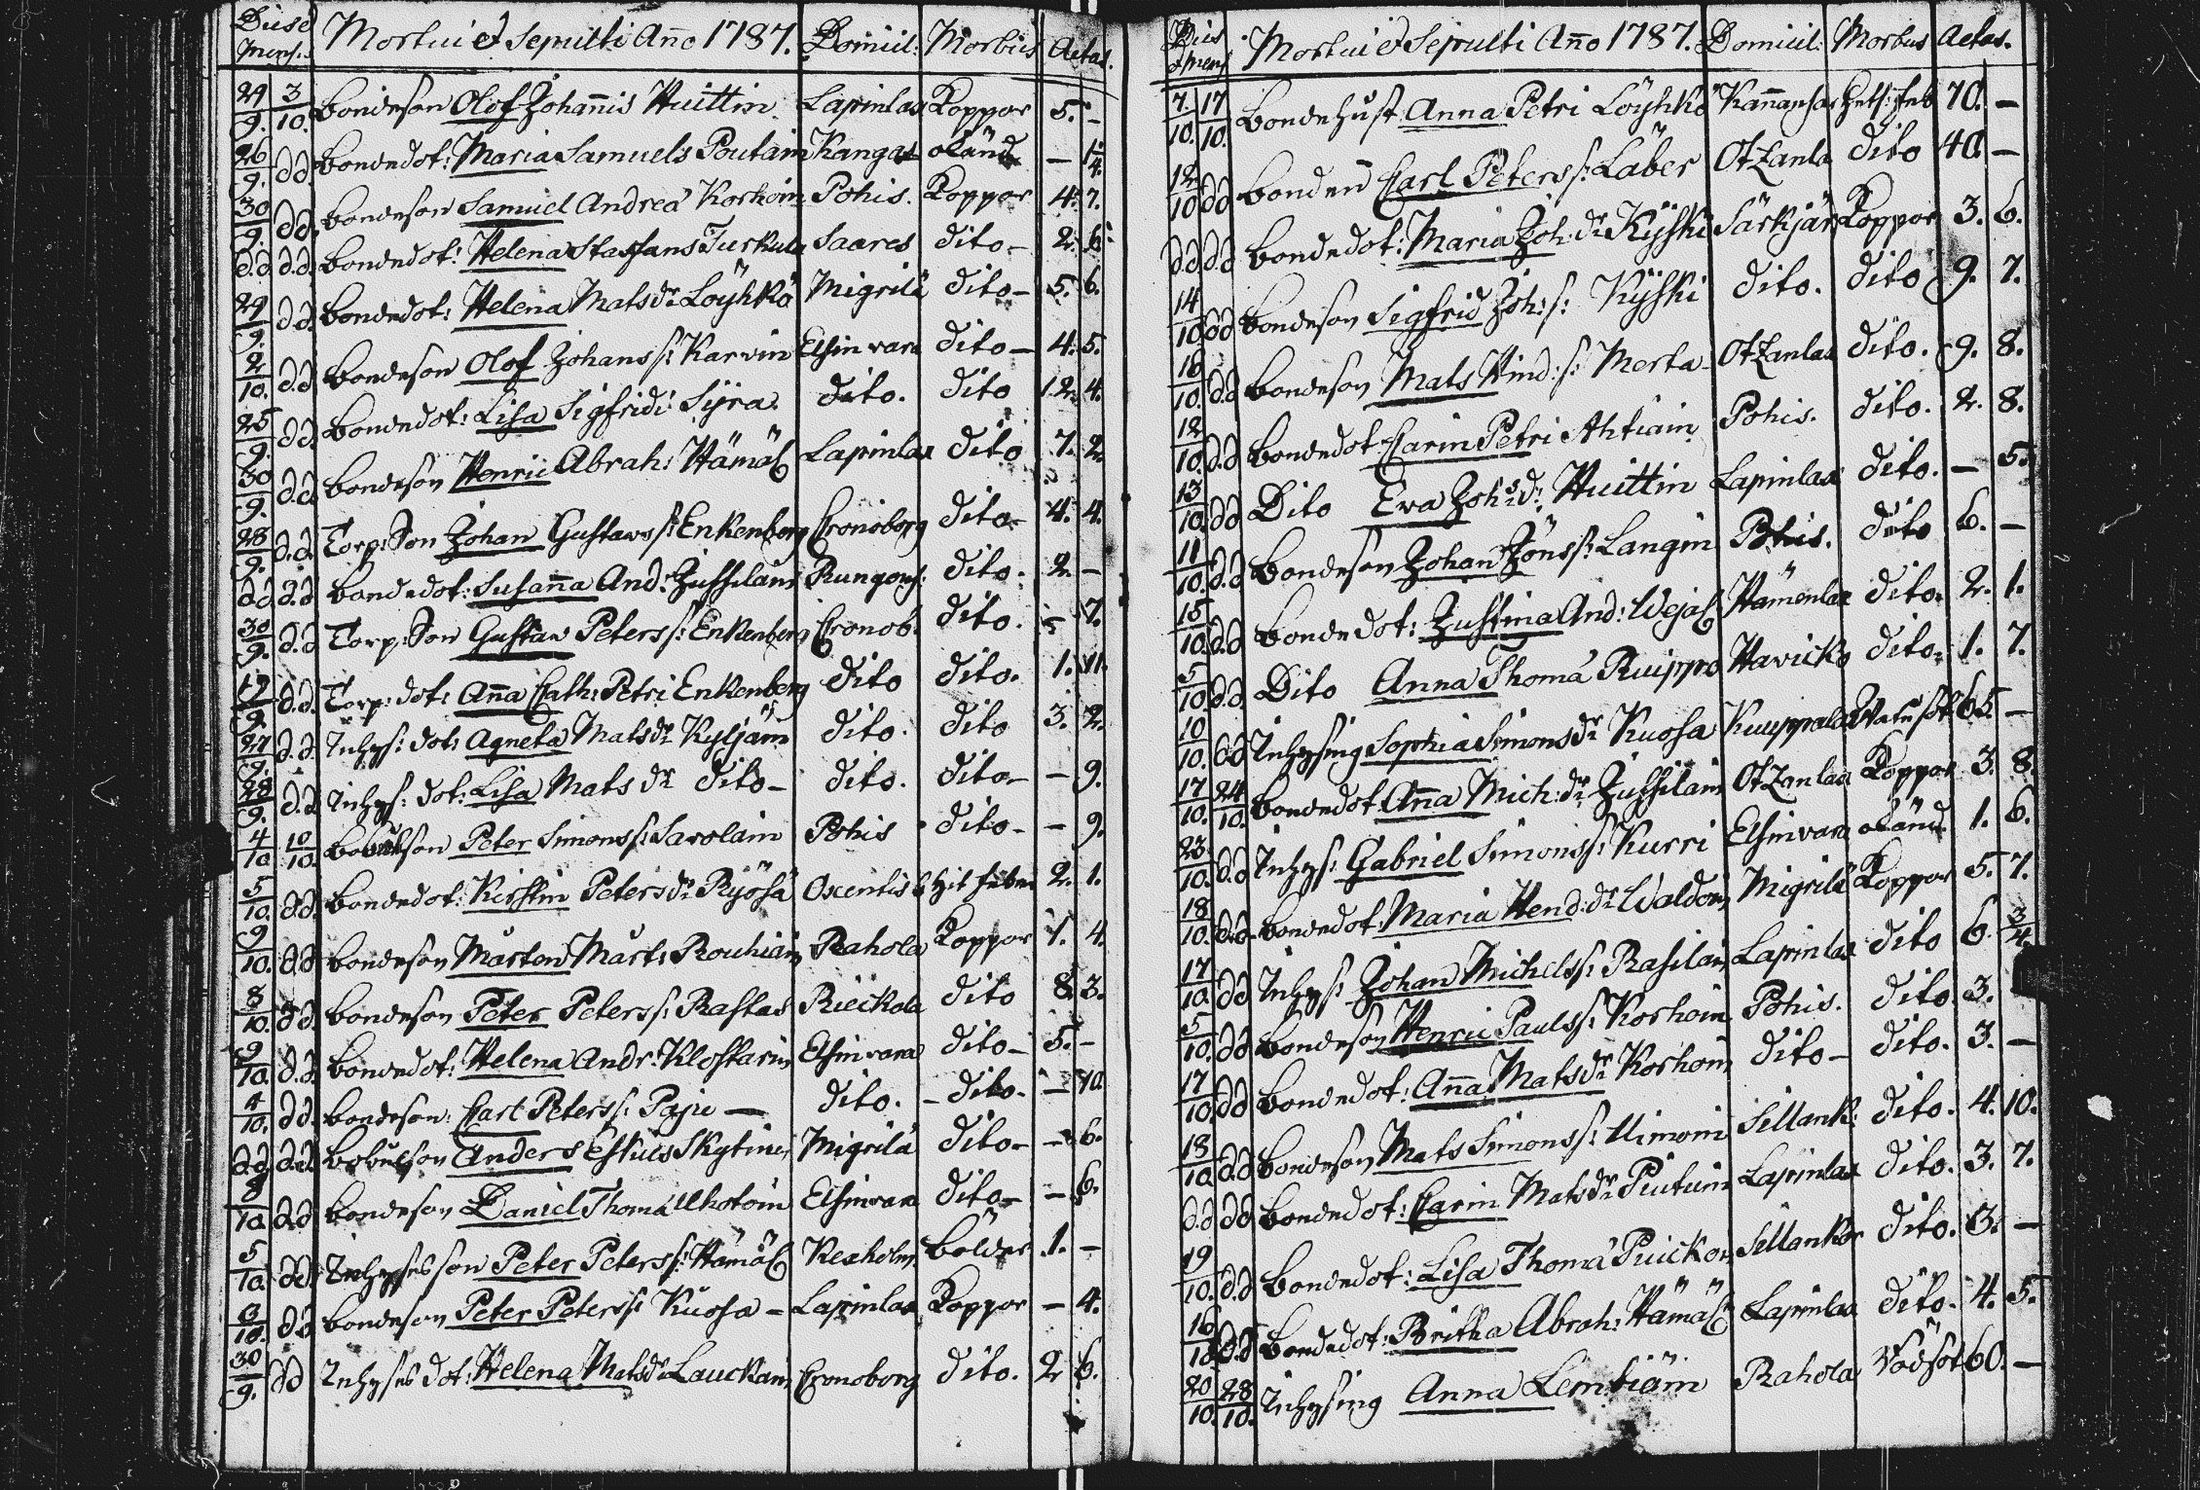 Dies & Mens: Mortui & Sepulti Año 1787. Domicil: Morbus Aetas.
29/9. 3/10. bondeson Olof Johannis Huittin Lapinlax Koppor 5. –
26/9. dd. bondedot: Maria Samuels Poutain Kangas okänd – 1/4.
30/9. dd. bondeson Samuel Andreæ Korhoin Pohis. Koppor 4. 7.
d.d. d.d. bondedot: Helena Staffans Turkula Saares dito – 2. 6.
29/9. d.d. bondedot: Helena Matsdr Löyhkö Migrilä dito – 5. 6.
2/10. d.d. bondeson Olof Johans s: Karvin Elsinvara dito – 4. 5.
25/9. dd. bondedot: Lisa Sigfridi Sijra dito. dito 12. 4.
30/9. d.d. bondeson Henric Abrah: Hämäl Lapinlax dito 7. 2.
28/9. d.d. Torp: Son Johan Gustavs s: Enkenberg Cronoborg dito. 4. 4.
dd d.d bondedot: Susaña And: Jussilain Rungons: dito. 2. –
30/9. d.d Torp: Son Gustav Peters s: Enkenberg Cronob. dito. – 7.
d.d. Torp: dot: Aña Cath: Petri Enkenberg dito dito. 1. 11.
27/9. d.d. Inhys: dot: Agneta Matsdr Kyljäin dito. dito 3. 2.
28/9. d.d Inhys: dot: Lisa Mats dr dito – dito. dito – – 9.
4/10. 10/10. son Peter Simons s: Savolain Pohis dito – – 9.
5/10. dd. bondedot: Kirstin Petersdr Ryösä Oxentis 2. 1.
9/10. d.d bondeson Mårten Mårt: Rouhiain Rahola Koppor 7. 4.
8/10. dd. bondeson Peter Peters s: Rastas Rieckola dito 8. 3.
9/10. d.d. bondedot: Helena Andr: Klostarin Elsinvara dito – 5. –
4/10. dd. bondeson: Carl Peters s: Paju – dito. – dito. – 10.
d.d. d.d. son Anders Eskils Skytin Migrilä dito – – 6.
8/10. dd bondeson Daniel Thomæ Uhotoin Elsinvara dito – – 6.
5/10. dd. Inhyses son Peter Peters s: Hämäl Rexholm. bölder 1. –
6/10. dd bondeson Peter Peters s: Kuosa – Lapinlax Koppor – 4.
30/9. dd Inhyses dot: Helena Matsdr Lauckain Cronoborg dito. 2 6.
Dies & Mens Mortui & Sepulti Año 1787. Domicil: Morbus Aetas.
7./10. 17/10. Bondehust: Anna Petri Löyhkö Kañansar 70. –
12/10 dd bonden Carl Peters s: Laber Otzanla dito 40. –
dd dd bondedot: Maria Joh: dr Kyïski Särkjär Koppor 3. 6.
14/10. dd bondeson Sigfrid Joh: s: Kyïski dito. dito 9. 7.
16/10. d.d bondeson Mats Hind: s: Merta Otzanlax dito. 9. 8.
12/10. d.d bondedot: Carin Petri Ahtiain Pohis. dito. 2. 8.
13/10. dd Dito Eva Johs: d: Huittin Lapinlax dito. – 5.
11/10. d.d bondeson Johan Jöns s: Langin Pohis. dito 6. –
15/10. d.d bondedot: Justina And: Wejal Hämenlax dito. 2. 1.
5/10 d.d Dito Anna Thomæ Ruippo Havicko dito. 1. 7.
10/10. dd Inhysing Sophia Simonsdr Kuosa Kuuppala Watusot 65 –
17/10. 24/10. bondedot: Aña Mich: dr Jussilain Otzanlax Koppor 3. 8.
23/10. d.d Inhys: Gabriel Simons s: Kurri Elsinvara okänd. 1. 6.
18/10. d.d. bondedot: Maria Hend: dr Waldoin Migrilä Koppor 5. 7.
17/10 dd Inhys: Johan Michels s: Rasilain Lapinlax dito 6. 3/4.
5/10. dd bondeson Henric Pauls s: Korhoin Pohis. dito. 3.
17/10. dd bondedot: Aña Matsdr Korhoin dito – dito. 3. –
18/10. d.d bondeson Mats Simons s: Uimoin Sillank: dito. 4. 10.
d.d dd bondedot: Carin Matsdr Piutuin Lapinlax dito. 3. 7.
19/10. d.d bondedot: Lisa Thomæ Puickon Sillankor dito. 3. –
16/10 d.d bondedot: Britha Abrah: Hämäl Lapinlax dito. 4. 5.
20/10. 28/10. Inhysing Anna Lembiäin Rahola 60. –